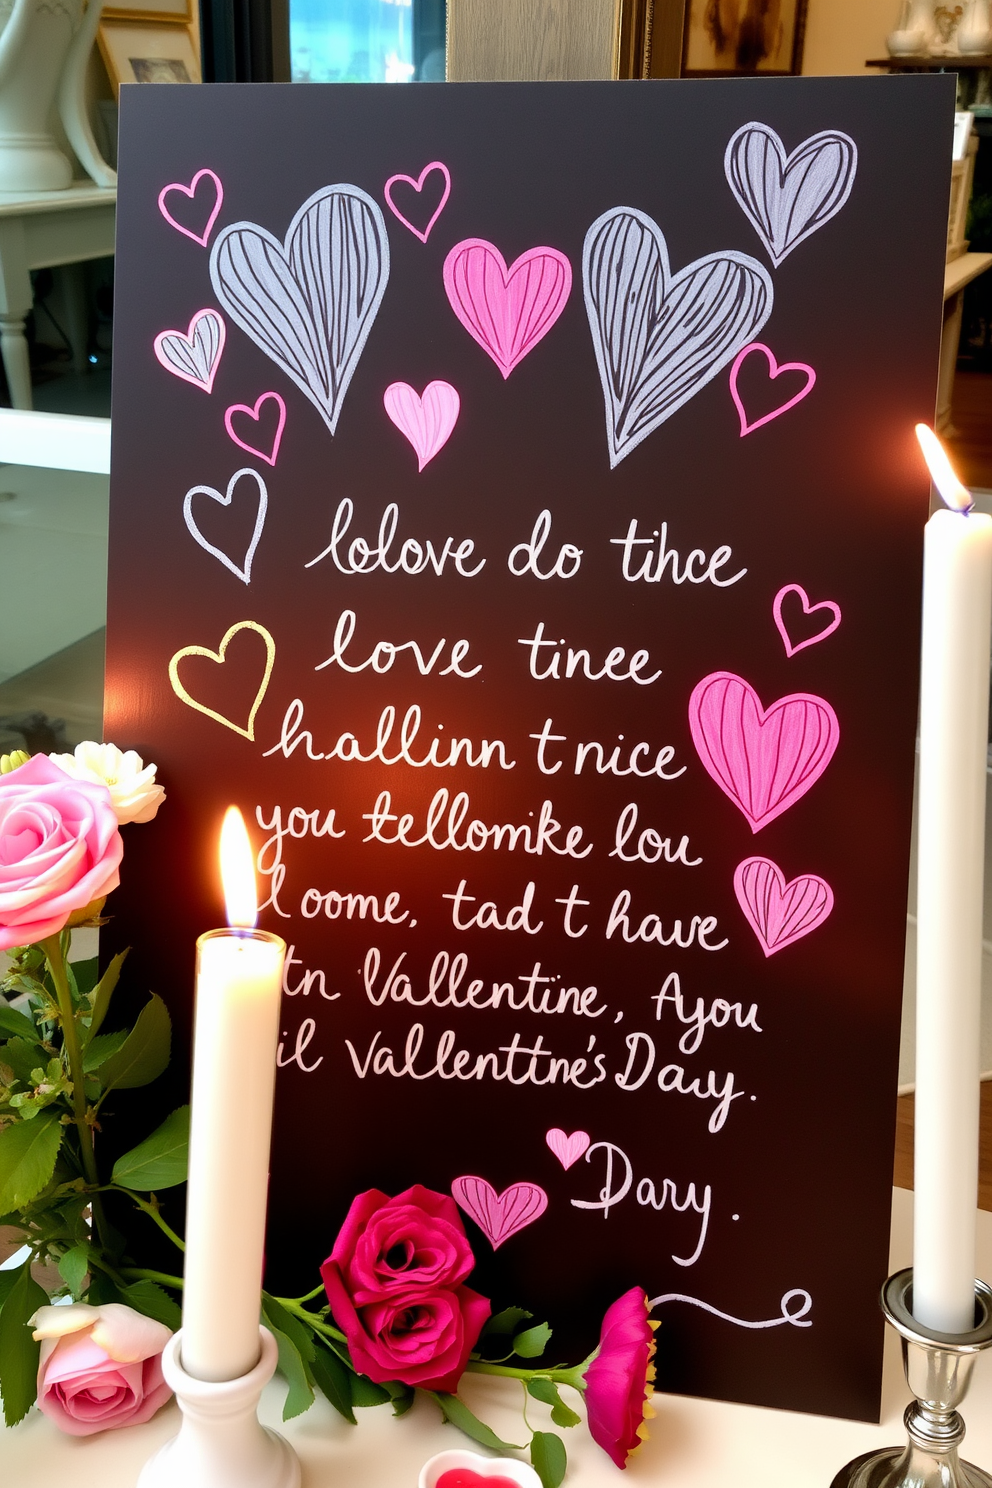 lolove do tihce
love tinee
hallinn t nice
you tellomike lou
l oome, tad t have
tn Vallentine, Ayou
il Vallenttne's Dauy.
Dary.